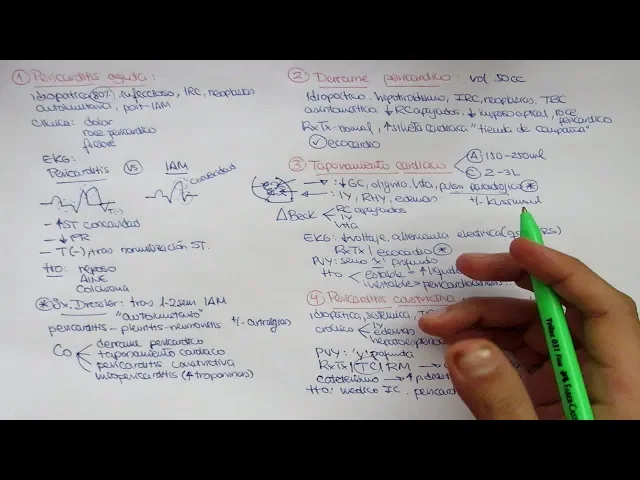 ① Pericarditis aguda:
idiopática (80%), infeccioso, IRC, neoplasias
autoinmunitaria, post-IAM
Clínica: dolor
roce pericárdico
fiebre
EKG:
Pericarditis VS IAM
convexidad
T(-)
- ↑ST concavidad
- ↓PR
- T(-) tras normalización ST.
tto: reposo
AINE
Colchicina
* Sx. Dressler: tras 1-2 sem IAM
"autoinmunitario"
pericarditis - pleuritis - neumonitis +/- artralgias
Co
derrame pericárdico
taponamiento cardíaco
pericarditis constrictiva
miopericarditis (↑ troponinas)
② Derrame pericárdico: vol. 50cc
Idiopático, hipotiroidismo, IRC, neoplasias, TBC
asintomático ↓RC apagados. ↓ impulso apical, roce
pericárdico
RxTx: normal, ↑ silueta cardíaca "tienda de campaña"
ecocardio
③ Taponamiento cardíaco
A: 150-250ml
C 2-3L
: ↓GC, oliguria, ↓ta, pulso paradójico *
: IY, RHY, edemas +/- Kussmaul
Δ Beck
RC apagados
IY
↓ta
EKG: ↓voltaje, alternancia eléctrica
RxTx | ecocardio *
PVY: seno 'x' profundo
tto
estable → ↑
inestable →
④ Pericarditis constrictiva
idiopática, sistémica,
crónica
IY
edemas
PVY: 'y' profunda
RxTx | TC | RM →
cateterismo →
tto: médico IC.
FABER-CASTELL